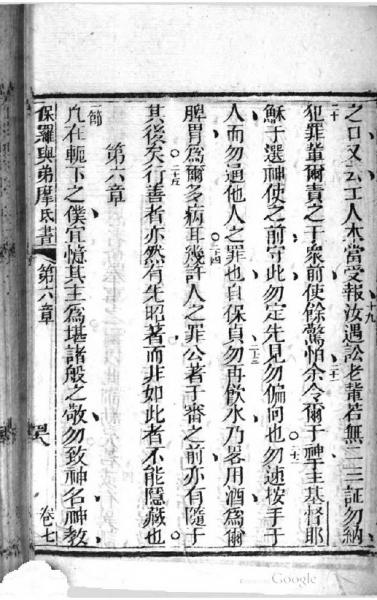 之口又云工人本當受報汝遇訟老輩若無二三証勿納
十九
犯罪輩爾責之于衆前使餘驚怕余令爾于神主基督耶
二十
二十一
穌于選神使之前守此勿定先見勿偏向也勿速按手于
二十二
人而勿通他人之罪也自保貞勿再飲水乃畧用酒爲爾
二十三
脾胃爲爾多病耳幾許人之罪公著于審之前亦有隨于
二十四
其後矣行善者亦然有先昭著而非如此者不能隱藏也
二十五
第六章
凢在軛下之僕宜憶其主爲堪諸般之敬勿致神名神教
一節
保羅與弟摩氏書
第六章
卷七
Google